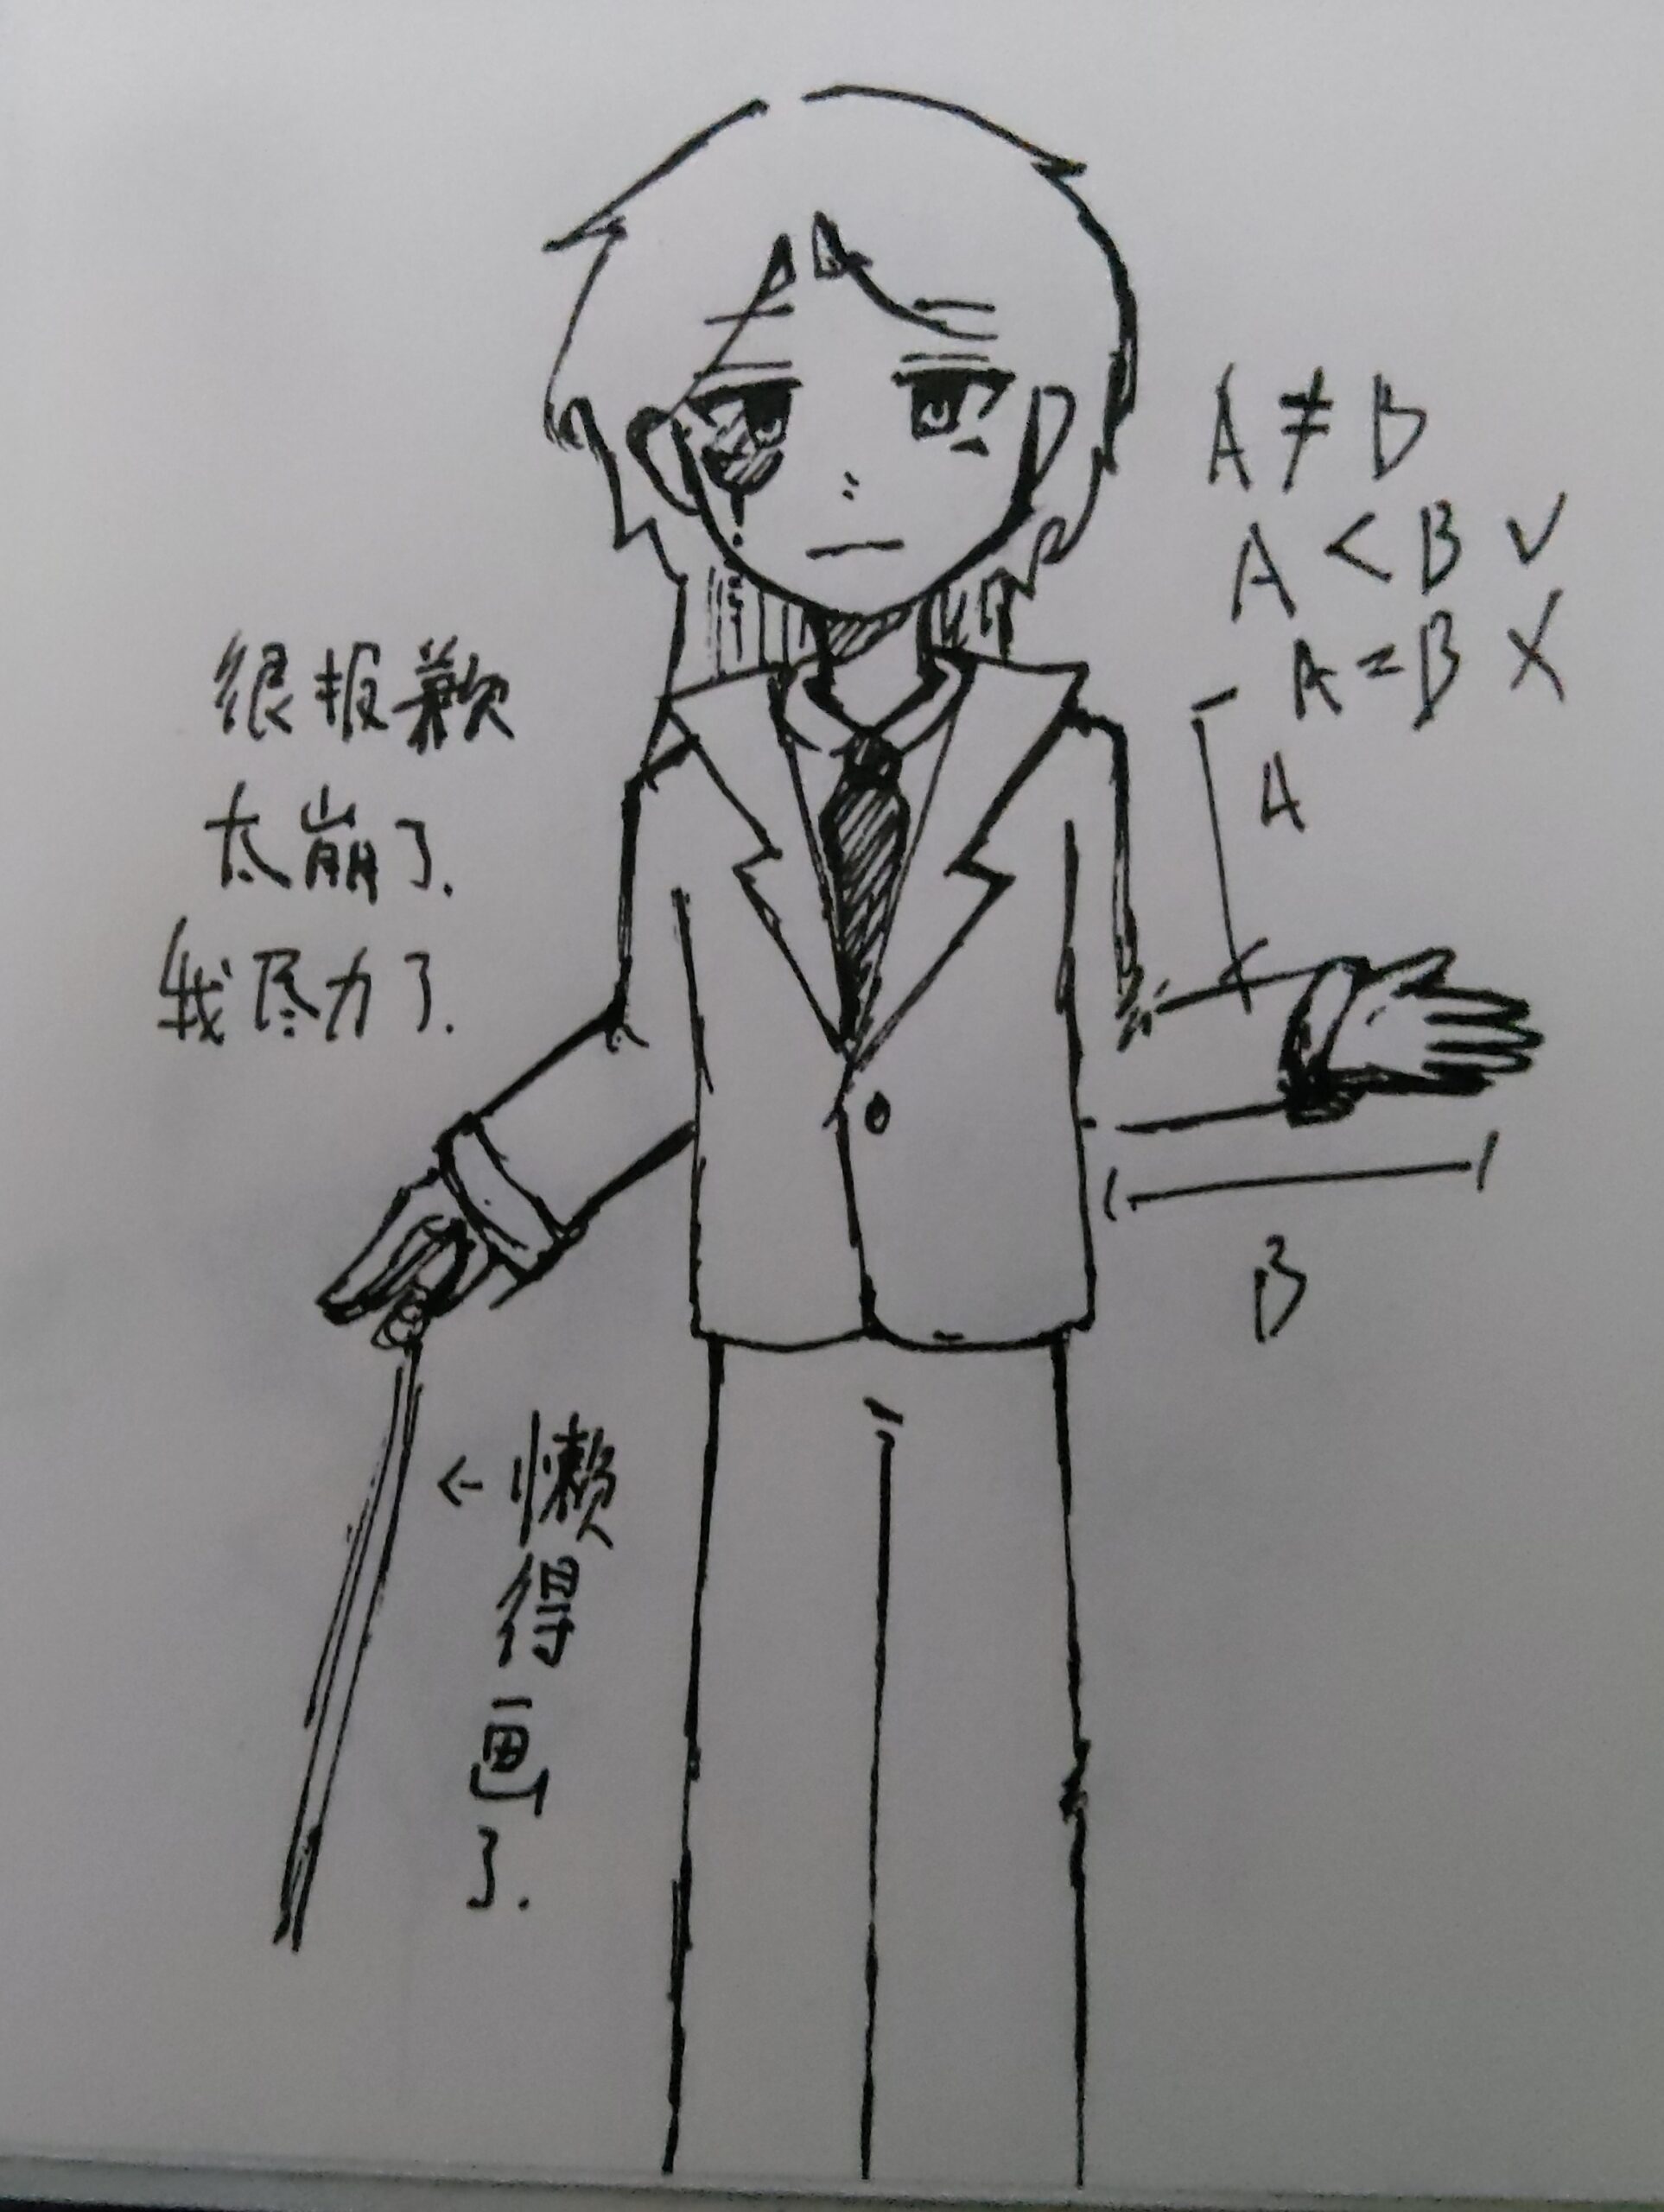 很抱歉
太崩了.
我尽力了.
A ≠ B
A < B ✓
A = B ×
A
B
← 懒得画了.